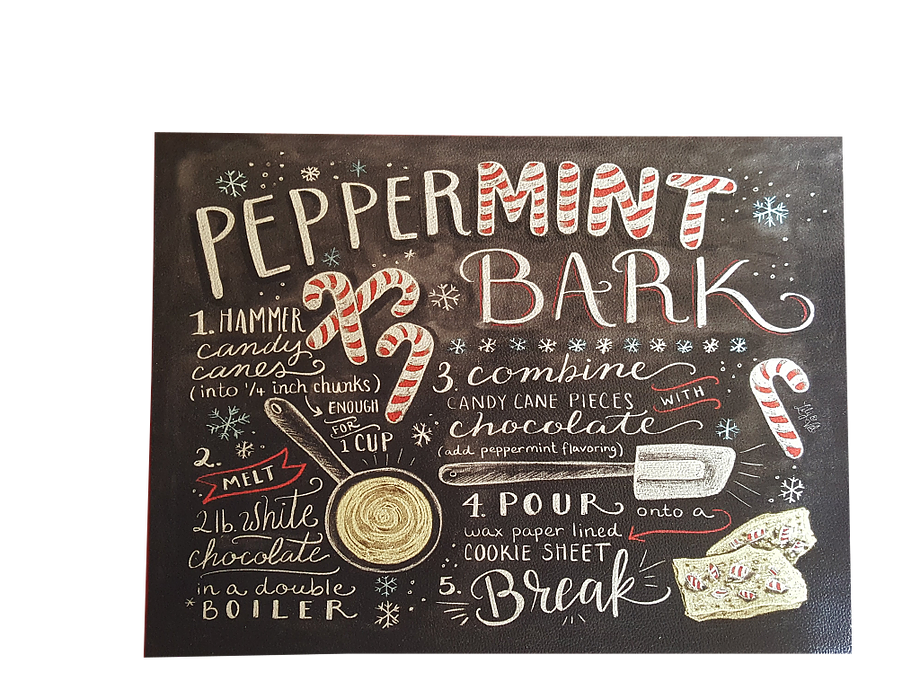 PEPPERMINT
BARK
1. HAMMER
candy
canes
(into 1/4 inch chunks)
ENOUGH
FOR
1 CUP
2.
MELT
2 lb. white
chocolate
in a double
* BOILER
3. combine
CANDY CANE PIECES
WITH
chocolate
(add peppermint flavoring)
4. POUR onto a
wax paper lined
COOKIE SHEET
5. Break